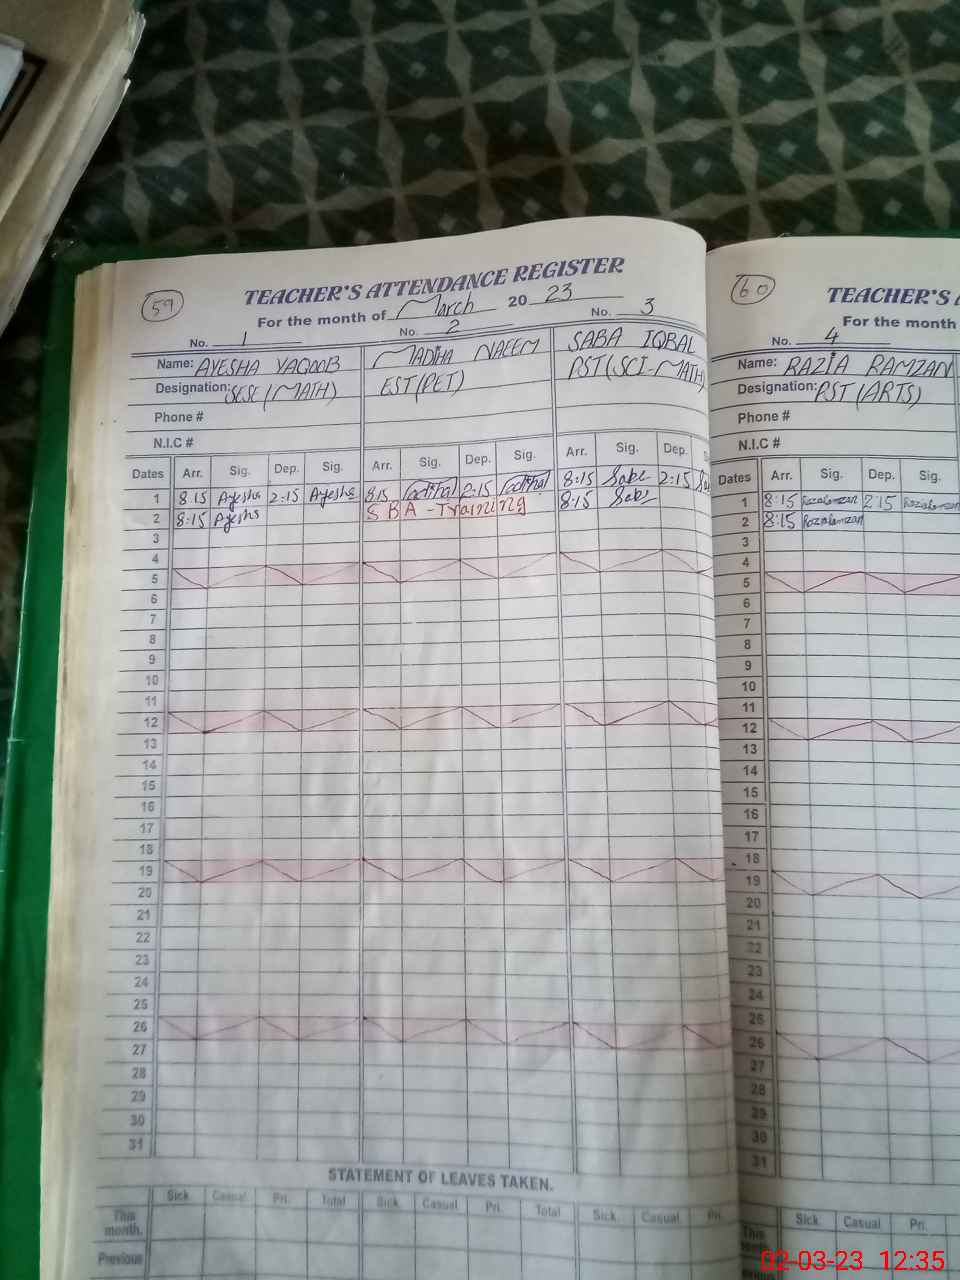 59
TEACHER'S ATTENDANCE REGISTER
For the month of March 20 23
No. 1 No. 2 No. 3
Name: AYESHA YAQOOB MADIHA NAEEM SABA IQBAL
Designation: SESE (MATH) EST(PET) PST(SCI-MATH)
Phone #
N.I.C #
Dates Arr. Sig. Dep. Sig. Arr. Sig. Dep. Sig. Arr. Sig. Dep. S
1 8:15 Ayesha 2:15 Ayesha 8:15 2:15 8:15 2:15
2 8:15 Ayesha SBA - Training 8:15
3
4
5
6
7
8
9
10
11
12
13
14
15
16
17
18
19
20
21
22
23
24
25
26
27
28
29
30
31
STATEMENT OF LEAVES TAKEN.
Sick. Casual Pri. Total Sick. Casual Pri. Total Sick. Casual Pri.
This month.
Previous
60
TEACHER'S
For the month
No. 4
Name: RAZIA RAMZAN
Designation: PST (ARTS)
Phone #
N.I.C #
Dates Arr. Sig. Dep. Sig.
1 8:15 2:15
2 8:15
3
4
5
6
7
8
9
10
11
12
13
14
15
16
17
18
19
20
21
22
23
24
25
26
27
28
29
30
31
Sick. Casual Pri.
This month.
02-03-23 12:35